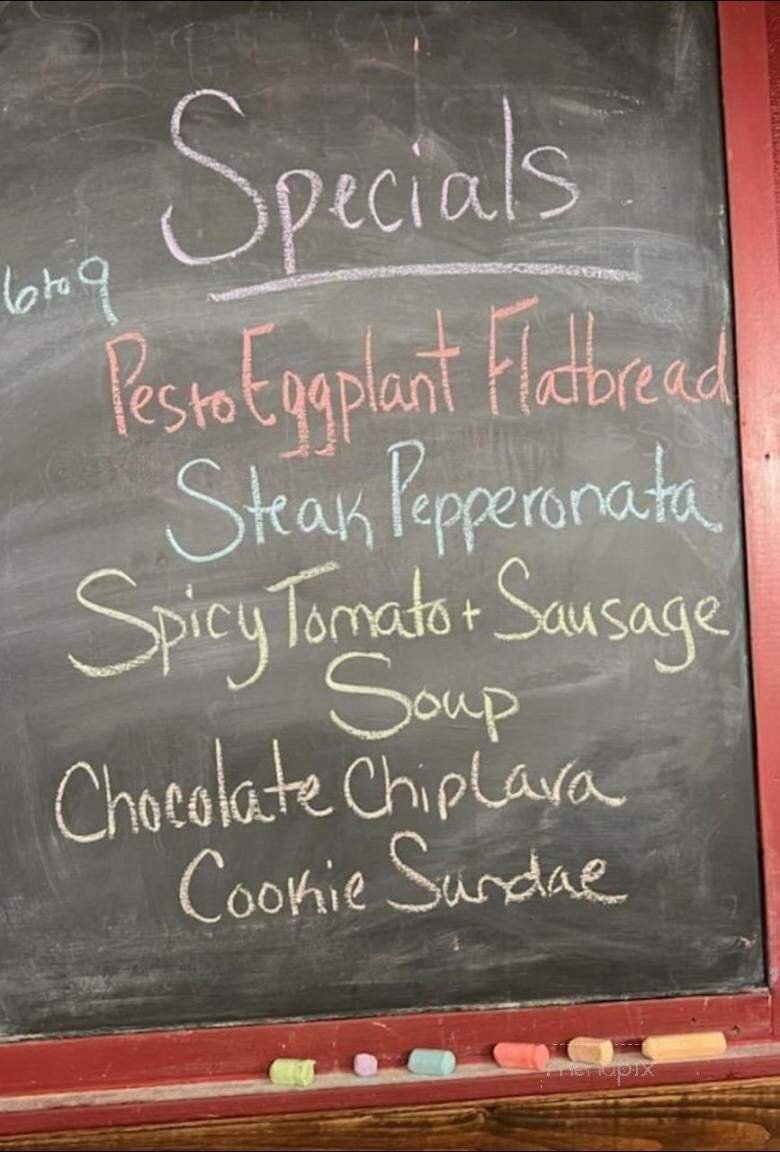 Specials
6 to 9
Pesto Eggplant Flatbread
Steak Pepperonata
Spicy Tomato + Sausage
Soup
Chocolate Chip Lava
Cookie Sundae
menupix